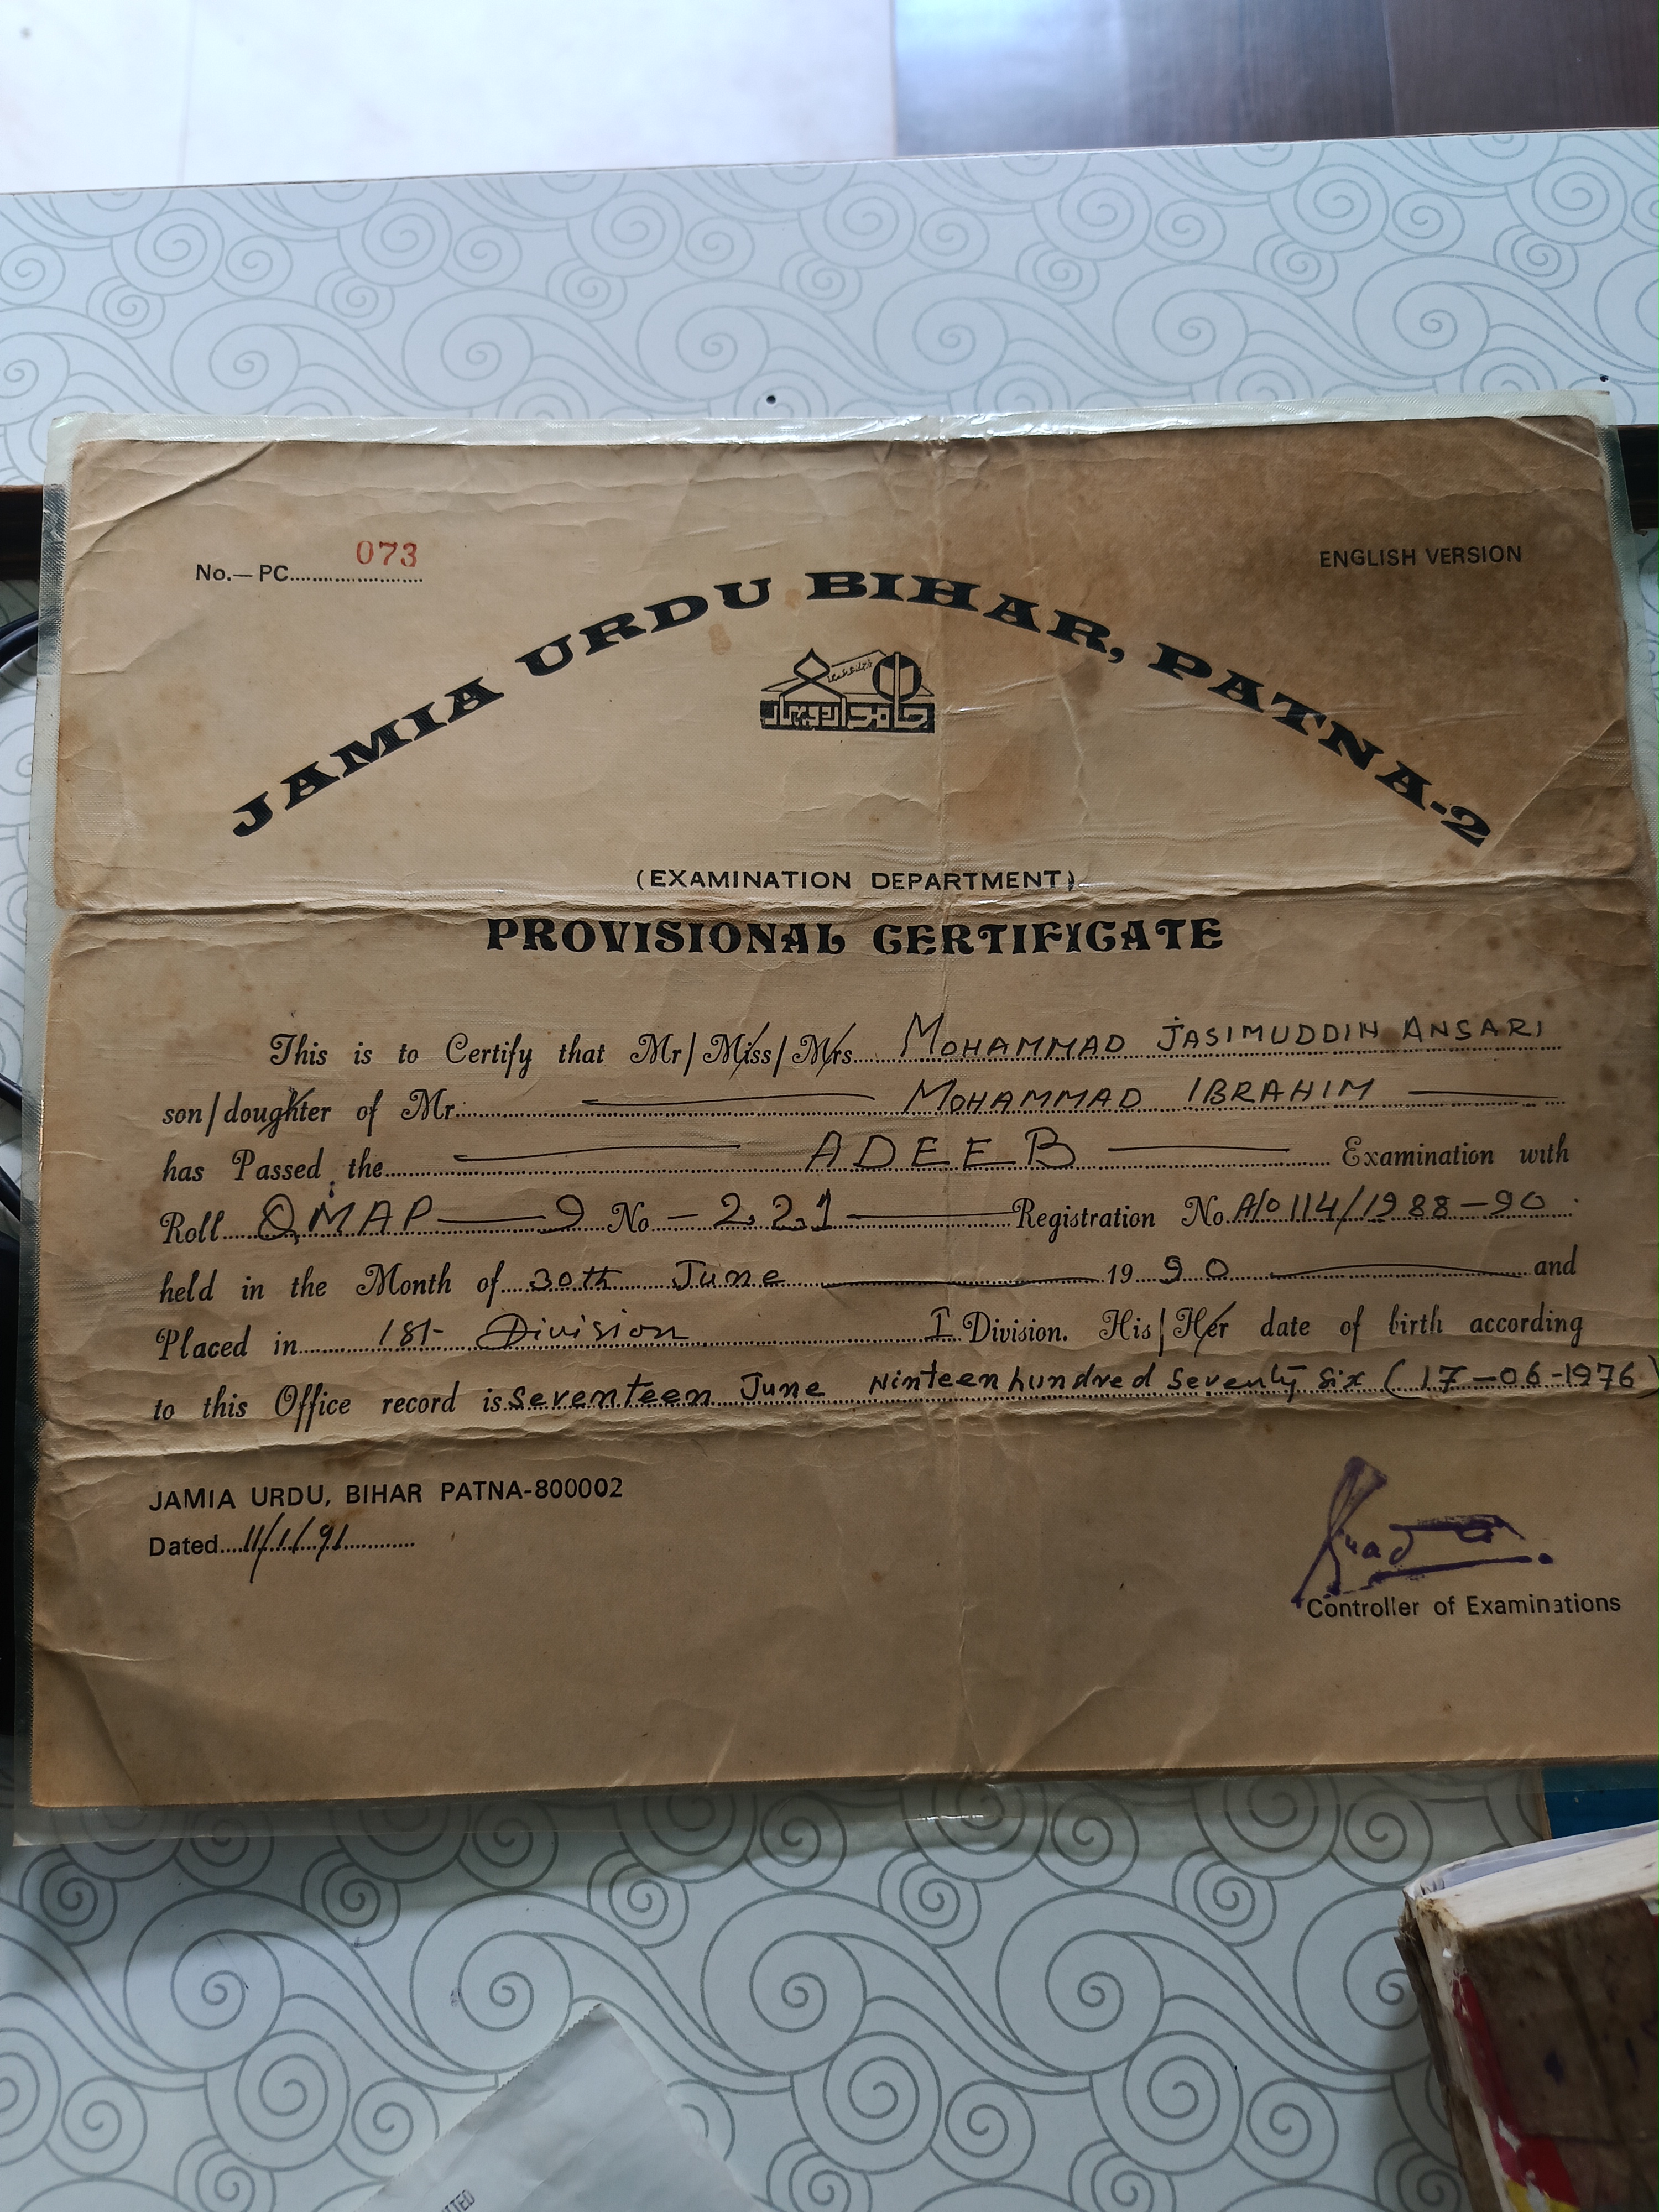 No.—PC.....073
ENGLISH VERSION
JAMIA URDU BIHAR, PATNA-2
جامعہ اردو بہار
(EXAMINATION DEPARTMENT)
PROVISIONAL CERTIFICATE
This is to Certify that Mr/Miss/Mrs.... MOHAMMAD JASIMUDDIN ANSARI
son/doughter of Mr.... MOHAMMAD IBRAHIM
has Passed the.... ADEEB .... Examination with
Roll.... Q,MAP — 9 No — 2,2,1 — Registration No A/o 114/1988-90
held in the Month of 30th June 19 90 and
Placed in.... 1st- Division .... I Division. His/Her date of birth according
to this Office record is Seventeen June Ninteen hundred Seventy Six (17-06-1976)
JAMIA URDU, BIHAR PATNA-800002
Dated....11/1/91....
Controller of Examinations